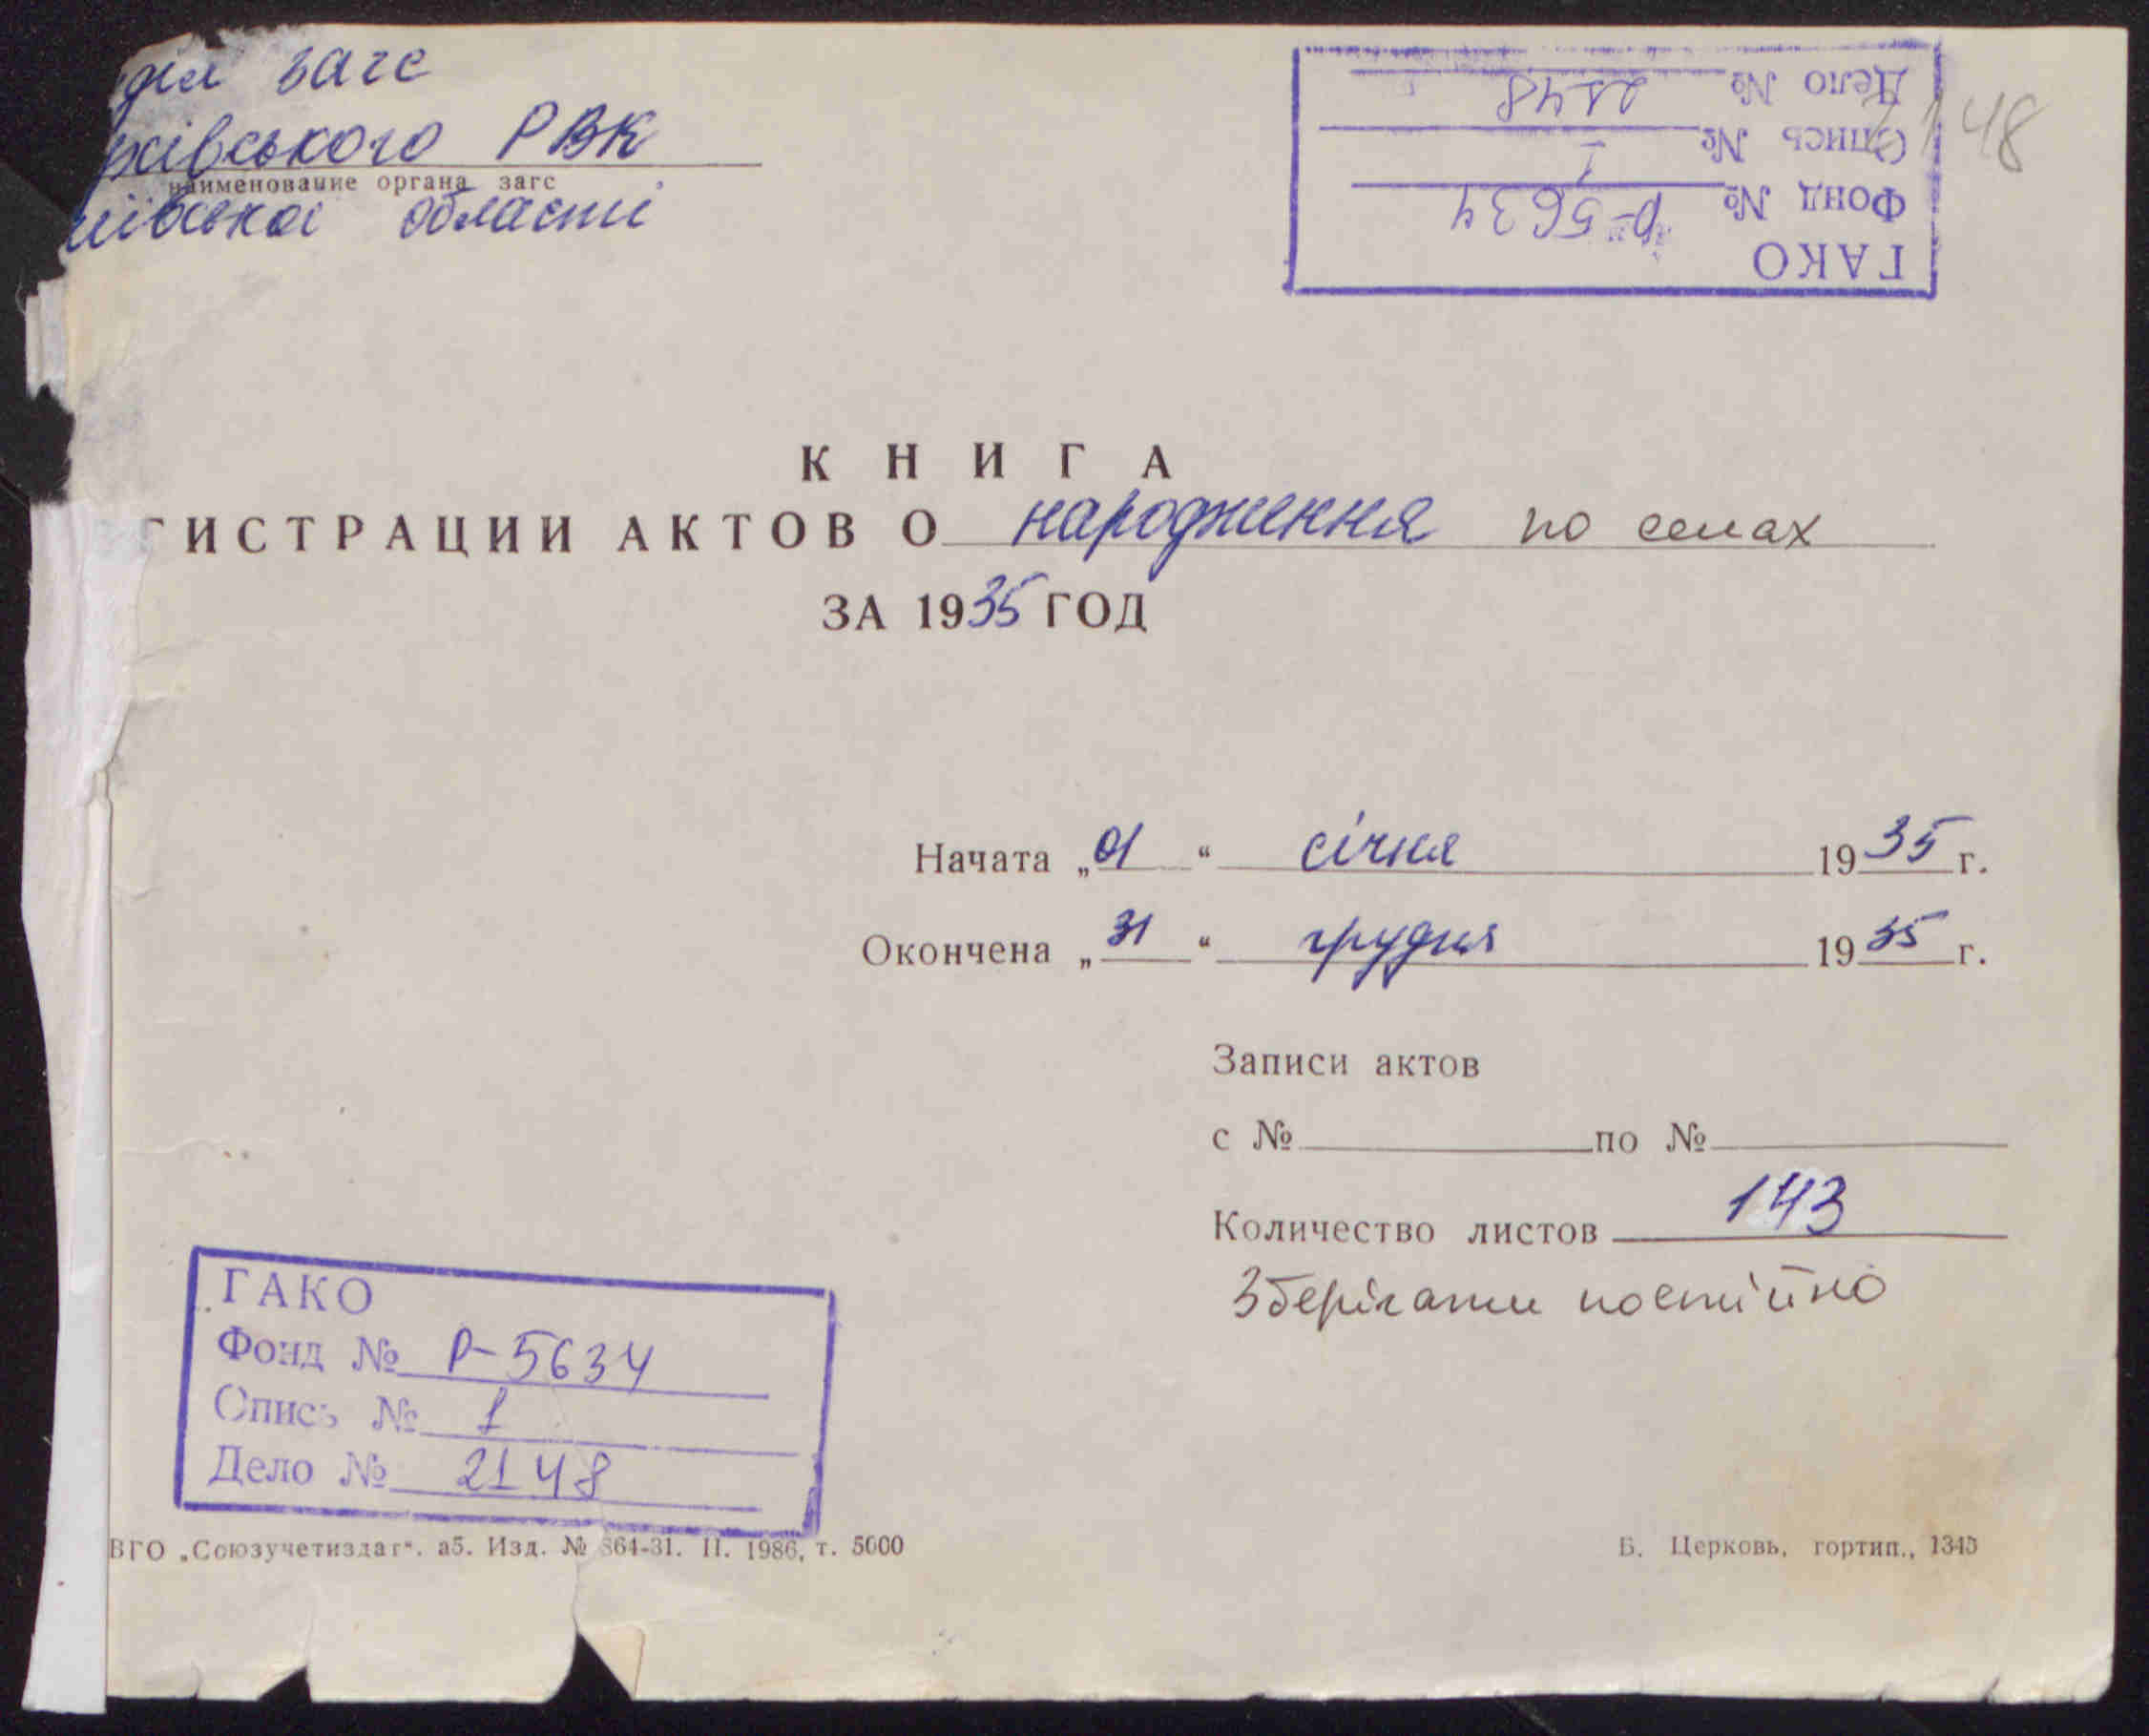 діл загс
рківського РВК
наименование органа загс
ївської області
ГАКО
Фонд № р-5634
Опись № 1
Дело № 2148
2148
КНИГА
ГИСТРАЦИИ АКТОВ О народження по селах
ЗА 1935 ГОД
Начата „01“ січня 1935 г.
Окончена „31“ грудня 1935 г.
Записи актов
с № по №
Количество листов 143
Зберігати постійно
ГАКО
Фонд № Р-5634
Опись № 1
Дело № 2148
ВГО „Союзучетиздат“. а5. Изд. № 864-31. II. 1986, т. 5000
Б. Церковь, гортип., 1345